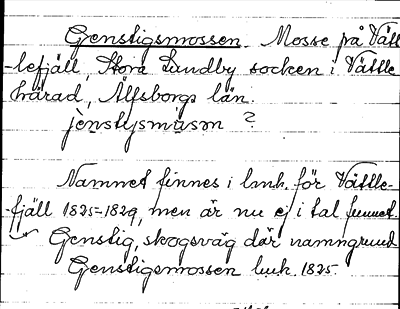 Genstigsmossen. Mosse på Vätt-
lefjäll, Stora Lundby socken i Vättle
härad, Älfsborgs län.
jènstysmåsᴐn ?
Namnet finnes i lmh. för Vättle-
fjäll 1825-1829, men är nu ej i tal funnet.
Genstig, skogsväg där namngrund
Genstigsmossen lmh. 1825.